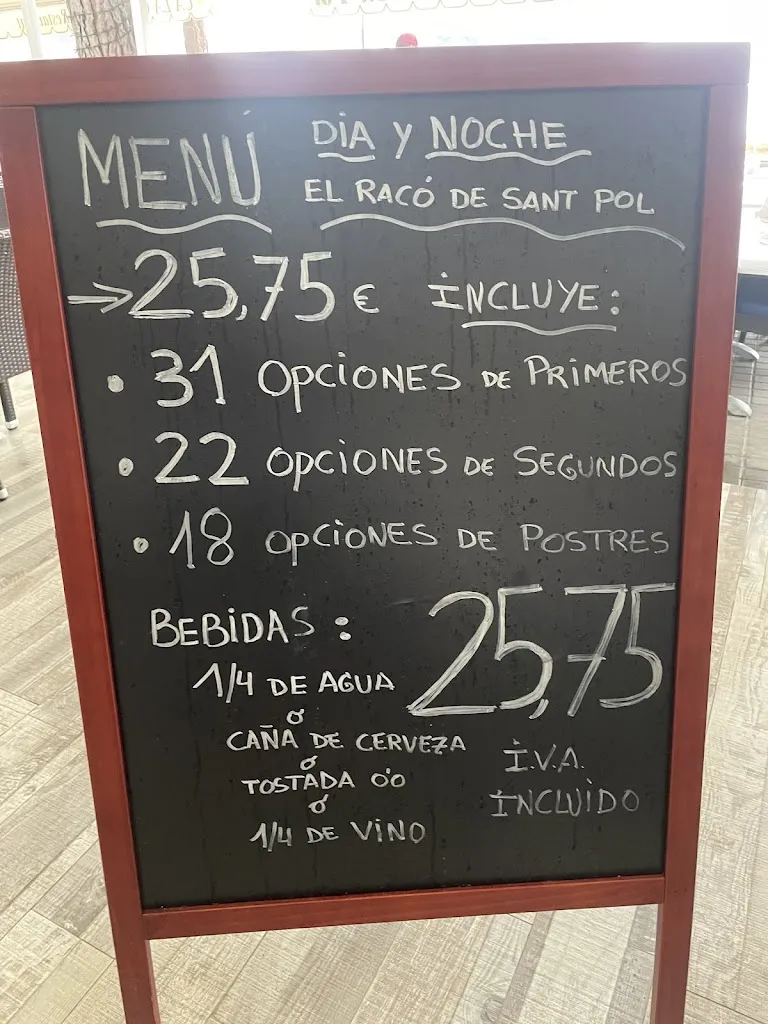 MENÚ DÍA Y NOCHE
EL RACÓ DE SANT POL
→ 25,75 € INCLUYE:
• 31 OPCIONES DE PRIMEROS
• 22 OPCIONES DE SEGUNDOS
• 18 OPCIONES DE POSTRES
BEBIDAS:
25,75
1/4 DE AGUA
ó
CAÑA DE CERVEZA
ó
TOSTADA 0'0
ó
1/4 DE VINO
I.V.A.
INCLUIDO